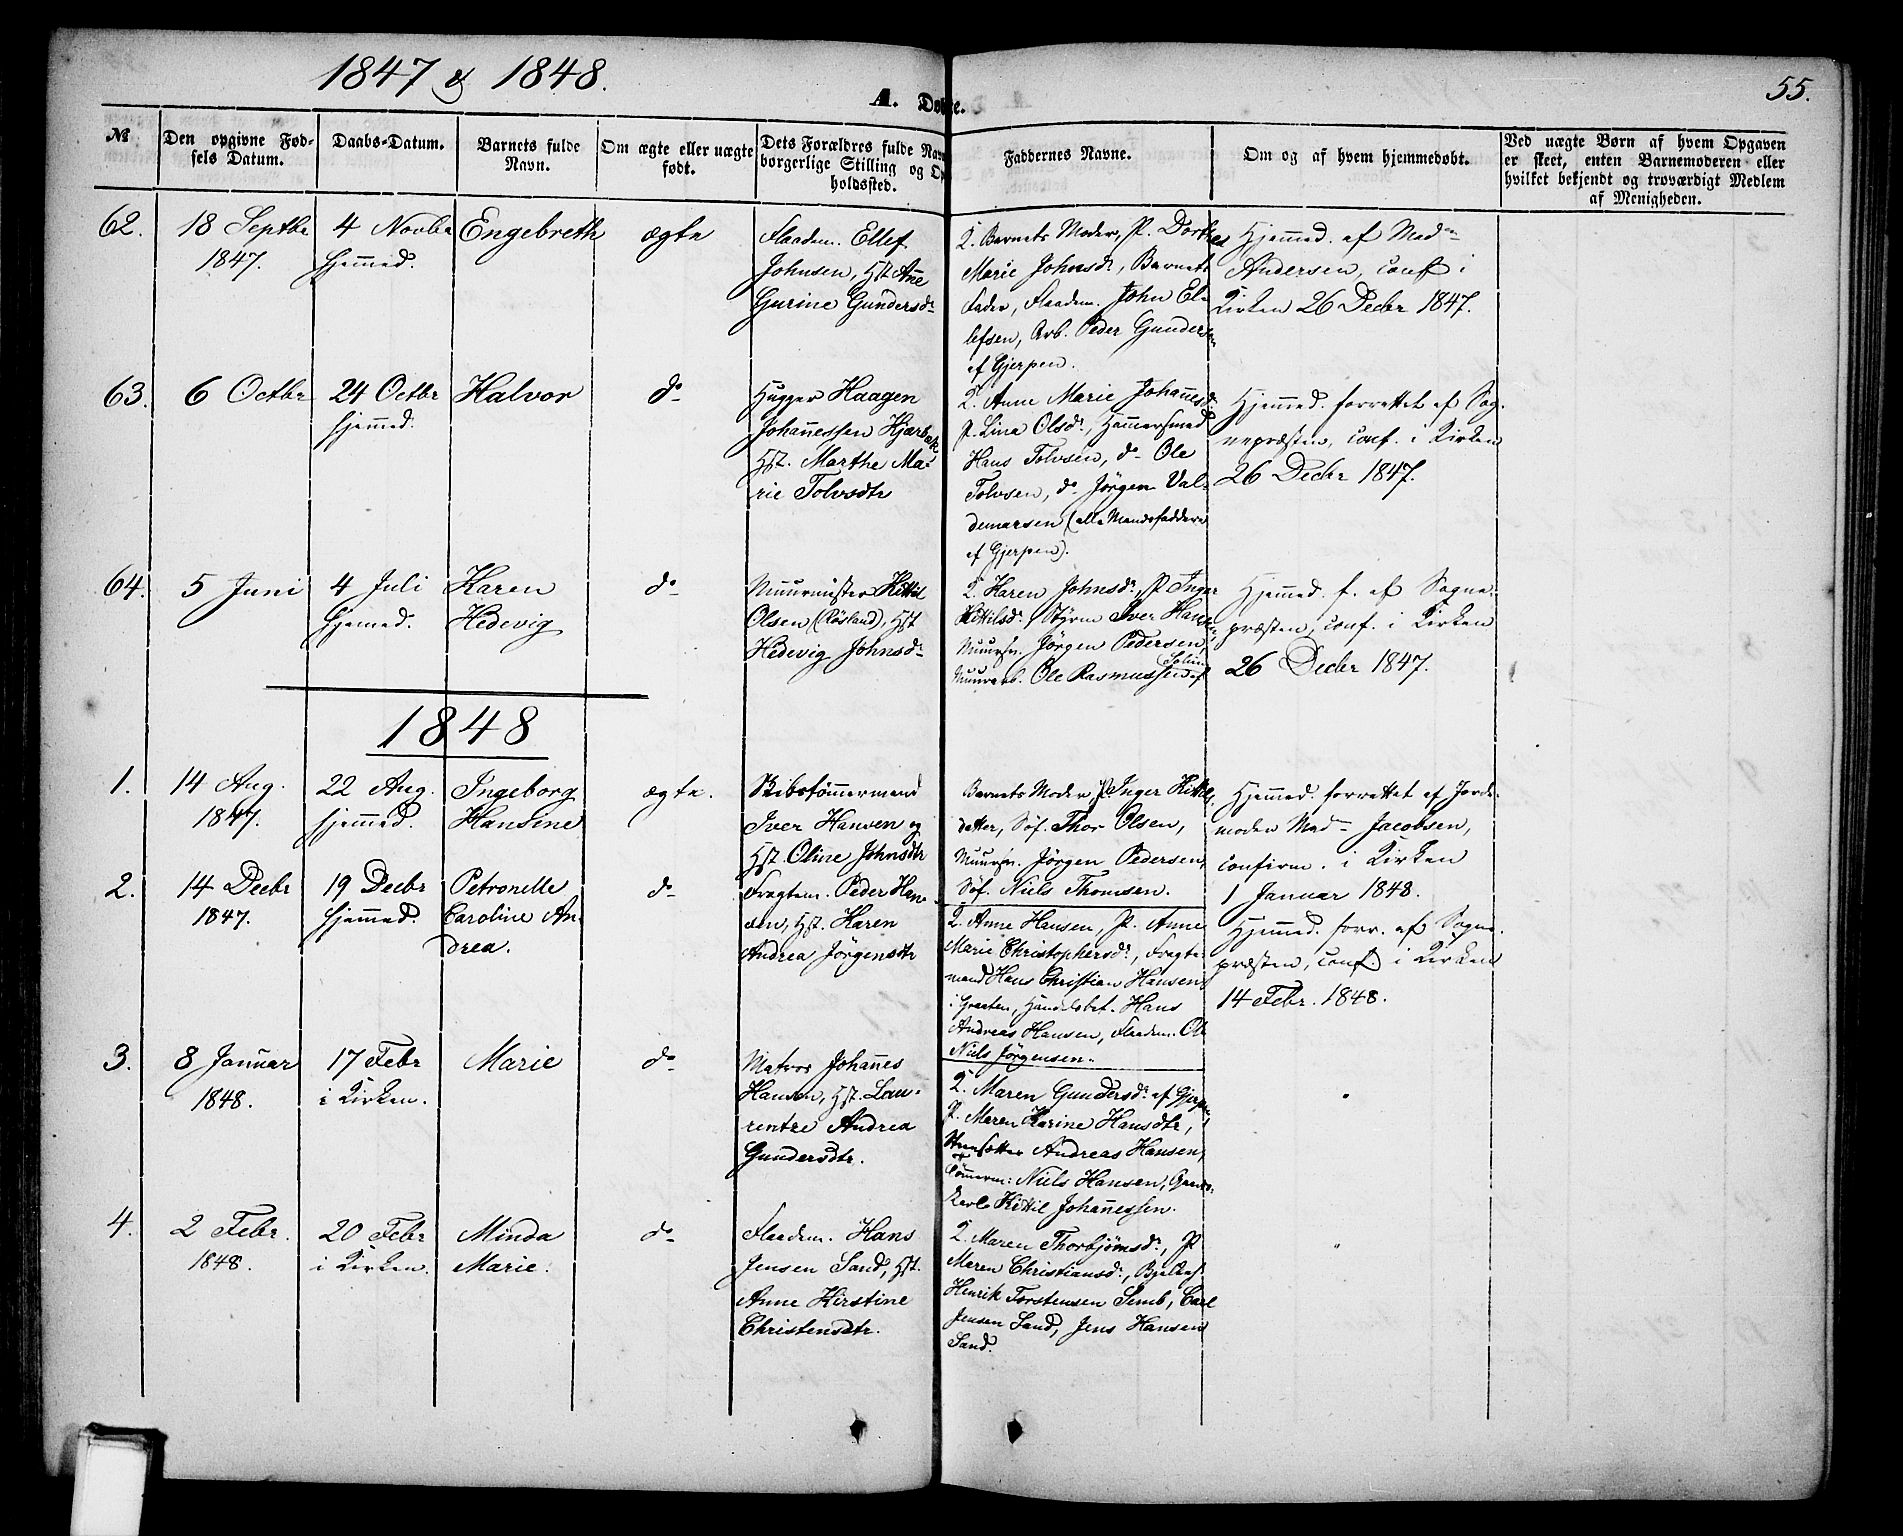 1847 & 1848.
A. Døbte.
55.
№
Den opgivne Fød-
sels Datum.
Daabs-Datum.
Barnets fulde
Navn.
Om ægte eller uægte
født.
Dets Forældres fulde Navn
borgerlige Stilling og Op
holdssted.
Faddernes Navne.
Om og af hvem hjemmedøbt.
Ved uægte Børn af hvem Opgaven
er skeet, enten Barnemoderen eller
hvilket bekjendt og troværdigt Medlem
af Menigheden.
62.
18 Septbr
1847.
4 Novbr
hjemmed.
Engebreth
ægte
Flaadem. Ellef
Johnsen, Hst. Anne
Gurine Gundersdr
Q. Barnets Moder, P. Dorthea
Marie Johnsdr, Barnets
Fader, Flaadem. John El-
lefsen, Arb. Peder Gundersen
af Gjerpen.
Hjemmed. af Mad
Andersen, conf. i
Kirken 26 Decbr 1847.
63.
6 Octbr
24 Octbr
hjemmed.
Halvor
do
Hugger Haagen
Johannessen Hjærbek
Hst. Marthe Ma-
rie Tolvsdtr
Q. Anne Marie Johannesdr
P. Lina Olsdr, Hammersmed
Hans Tolvsen, do Ole
Tolvsen, do Jørgen Val-
demarsen (alle Mandsfaddere
af Gjerpen).
Hjemmed. forrettet af Sog-
nepræsten, conf. i Kirken
26 Decbr 1847.
64.
5 Juni
4 Juli
hjemmed.
Karen
Hedevig
do
Muurmester Kittil
Olsen (Røsland), Hst
Hedevig Johnsdr
Q. Karen Johnsdr, P. Inger
Kittilsdr, Styrm Iver Hansen,
Muursv. Jørgen Pedersen,
Muurarb. Ole Rasmussen af
Hjemmed. f. af Sogne-
præsten, conf. i Kirken
26 Decbr 1847.
1848
1.
14 Aug.
1847.
22 Aug.
hjemmed.
Ingeborg
Hansine
ægte.
Skibstømmermand
Iver Hansen og
Hst. Oline Johnsdtr
Barnets Moder, P. Inger Kittils
datter, Søf. Thor Olsen,
Muursv. Jörgen Pedersen,
Søf. Niels Thomsen.
Hjemmed. forrettet af Jorde-
moder Mad Jacobsen,
confirm. i Kirken
1 Januar 1848.
2.
14 Decbr
1847.
19 Decbr
hjemmed.
Petronelle
Caroline An-
drea.
do
Fragtem. Peder Han-
sen, Hst. Karen
Andrea Jörgensdtr
Q. Anne Hansen, P. Anne
Marie Christophersdr, Fragte-
mand Hans Christian Hansen
i Graaten, Handelsbet. Hans
Andreas Hansen, Flaadem. Ole
Niels Jörgensen.
Hjemmed. forr. af Sogne-
præsten, conf. i Kirken
14 Febr. 1848.
3.
8 Januar
1848.
17 Febr
i Kirken.
Marie
do
Matros Johannes
Hansen, Hst. Lau-
rentze Andrea
Gundersdtr.
Q. Maren Gundersdr af Gjerpen,
P. Maren Karine Hansdtr,
Andreas Hansen,
Tømmerm: Niels Hansen,
Karl Kittil Johannessen.
"
4.
2 Febr.
1848.
20 Febr
i Kirken.
Minda
Marie.
do
Flaadem. Hans
Jensen Sand, Hst.
Anne Kirstine
Christensdtr.
Q. Maren Thorbjørnsdr, P
Maren Christiansdr,
Henrik Torstensen Semb, Carl
Jensen Sand, Jens Hansen
Sand.
"